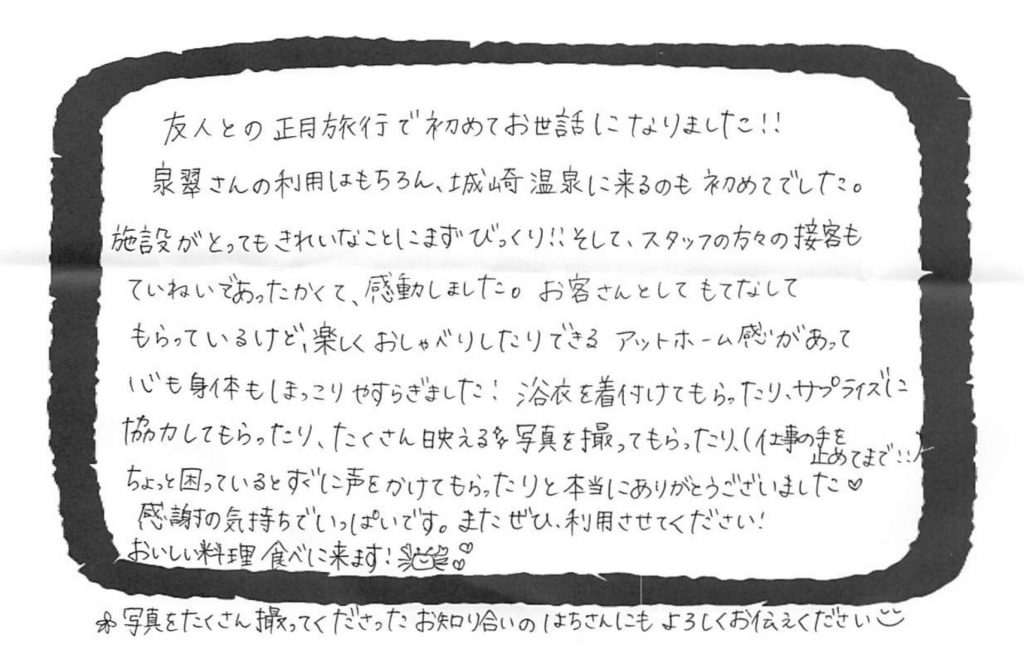 友人との正月旅行で初めてお世話になりました!!
泉翠さんの利用はもちろん、城崎温泉に来るのも初めてでした。
施設がとってもきれいなことにまずびっくり!!そして、スタッフの方々の接客も
ていねいであったかくて、感動しました。お客さんとしてもてなして
もらっているけど、楽しくおしゃべりしたりできるアットホーム感があって
心も身体もほっこりやすらぎました!浴衣を着付けてもらったり、サプライズに
協力してもらったり、たくさん映える写真を撮ってもらったり、(仕事の手を
止めてまで!!)
ちょっと困っているとすぐに声をかけてもらったりと本当にありがとうございました♡
感謝の気持ちでいっぱいです。またぜひ、利用させてください!
おいしい料理食べに来ます!
※写真をたくさん撮ってくださったお知り合いのはちさんにもよろしくお伝えください